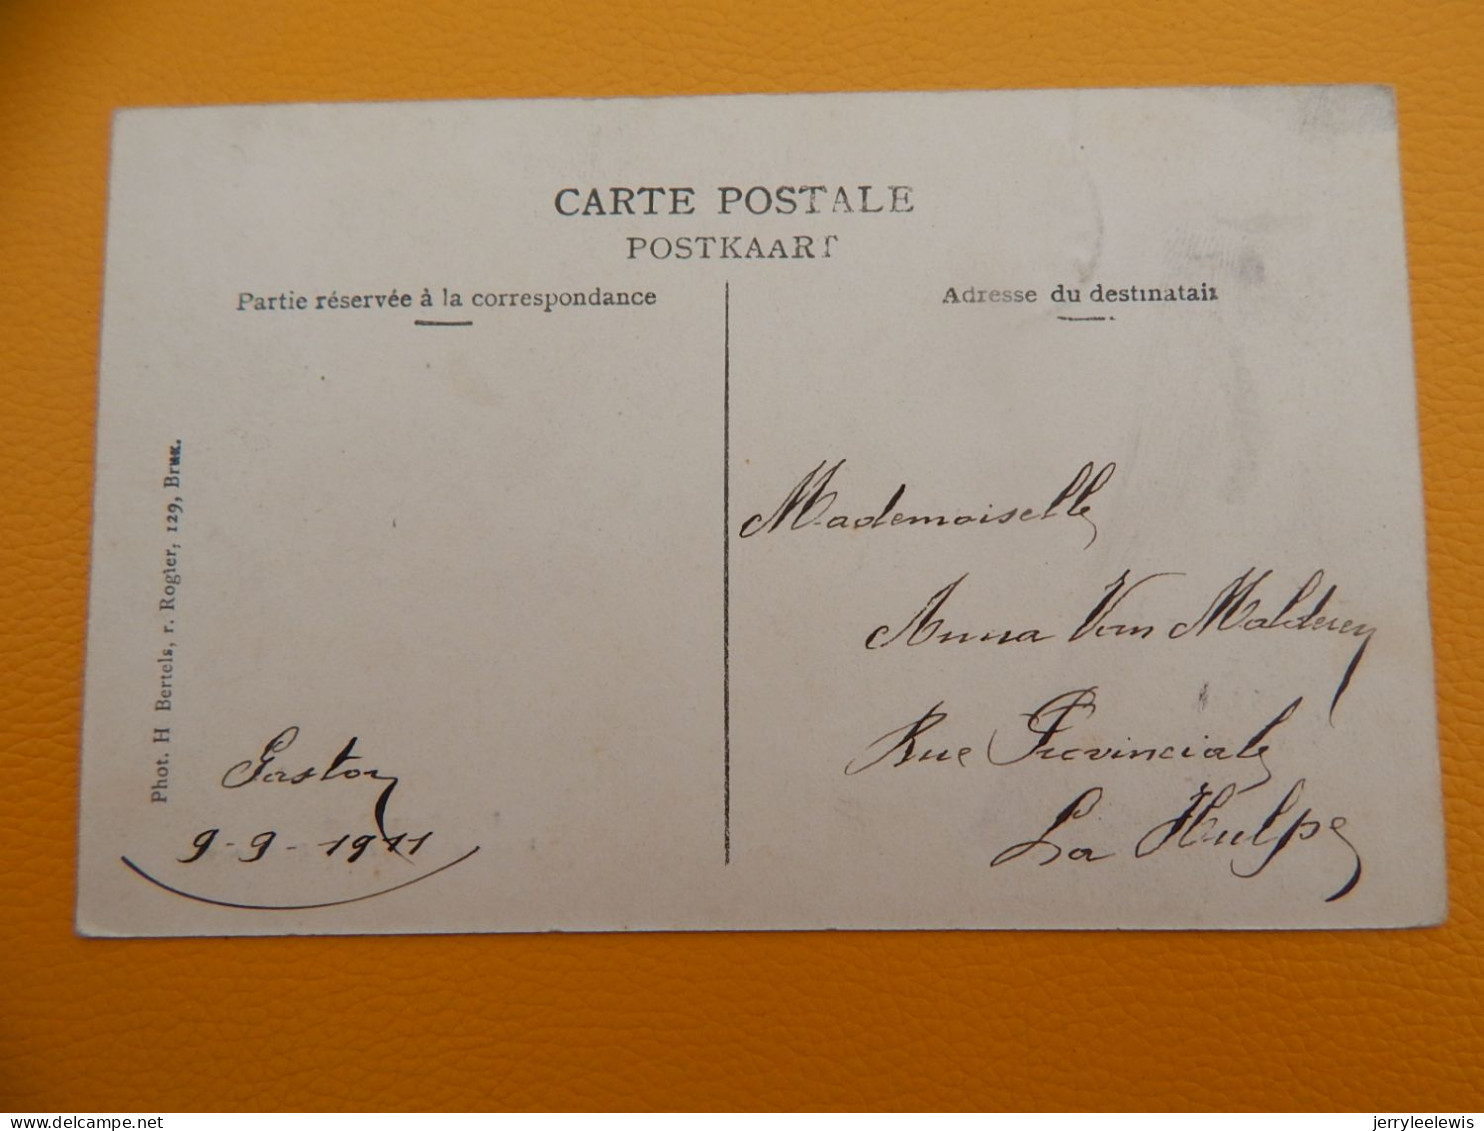 CARTE POSTALE
POSTKAART
Partie réservée à la correspondance
Adresse du destinatair
Phot. H Bertels, r. Rogier, 129, Brux.
Gaston
9-9-1911
Mademoiselle
Anna Van Malderen
Rue Provinciale
La Hulpe
jerryleelewis